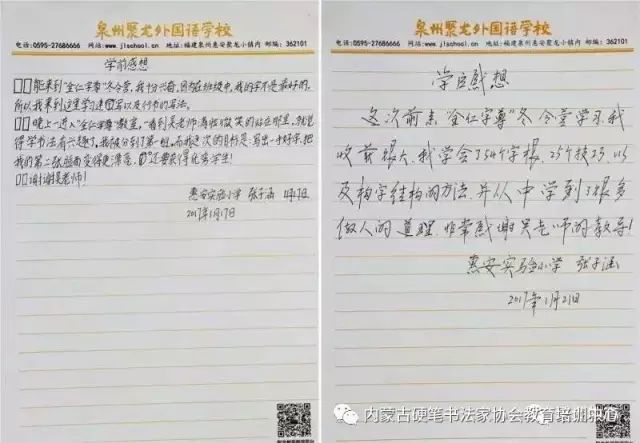 泉州聚龙外国语学校
电话:0595-27686666 网站:www.jlschool.cn 地址:福建泉州惠安聚龙小镇内 邮编:362101
学前感想
能来到“全仁字尊”冬令营,我十分兴奋,因为在班级中,我的字不是最好的,
所以我来到这里学习建国写以及行书的写法。
晚上一进入“全仁字尊”教室,看到吴老师满脸微笑的站在那里,就觉
得学书法有兴趣了。我被分到了第一组。而我这次的目标是:写出一手好字,把
我的第二张脸面变得更漂亮,还要获得优秀学生!
谢谢吴老师!
惠安实验小学 张子涵
2017年1月17日
泉州聚龙外国语学校
电话:0595-27686666 网站:www.jlschool.cn 地址:福建泉州惠安聚龙小镇内 邮编:362101
学后感想
这次前来“全仁字尊”冬令营学习,我
收前很大,我学会了54个字根,25个技巧,以
及构字结构的方法,并从中学到了很多
做人的道理,非常感谢吴老师的教导!
惠安实验小学 张子涵
2017年1月21日
内蒙古硬笔书法家协会教育培训中心